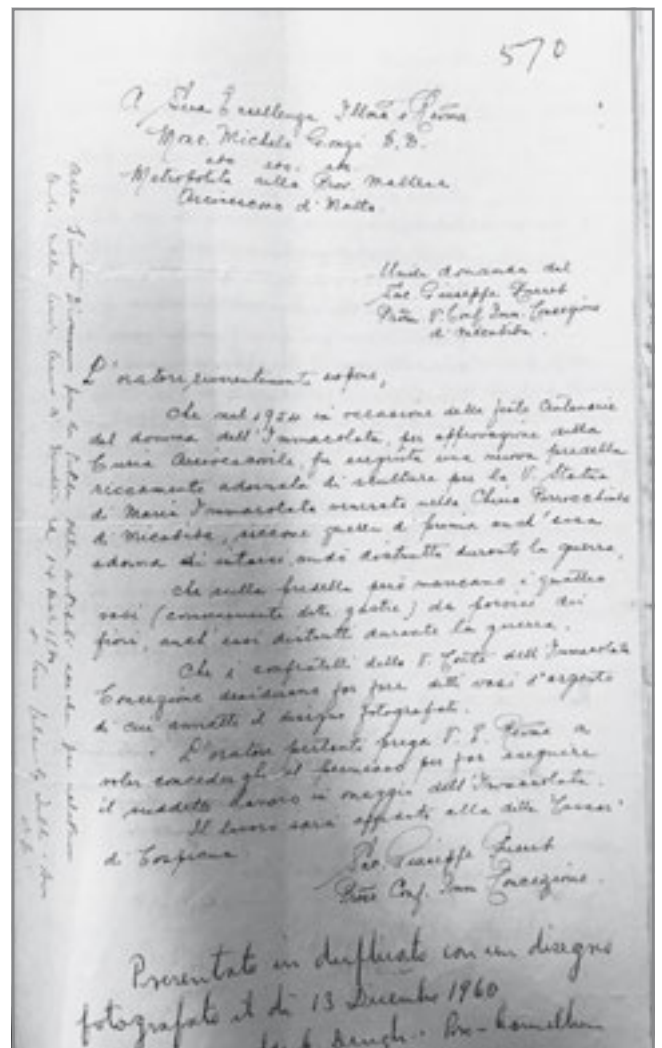 570
A Sua Eccellenza Illma e Revma
Mons. Michele Gonzi D. D.
etc. etc. etc.
Metropolita della Prov. Maltese
Arcivescovo di Malta.
Umile domanda del
Sac. Giuseppe
V. Conf. Imm. Concezione
L'oratore, riverentemente espone,
Che nel 1954 in occasione delle feste Centenarie
del domma dell'Immacolata, per approvazione della
Curia Arcivescovile, fu eseguita una nuova predella
riccamente adornata di scultura per la V. Statua
di Maria Immacolata venerata nella Chiesa Parrocchiale
di Micabiba, siccome quella di prima anch'essa
adorna di intarsi, andò distrutta durante la guerra.
Che sulla predella però mancano i quattro
vasi (comunemente dette gastre) da porvisi dei
fiori, anch'essi distrutti durante la guerra.
Che i confratelli della V. Confta dell'Immacolata
Concezione desiderano far fare detti vasi d'argento
di cui annette il disegno fotografato.
L'oratore pertanto prega V. E. Revma a
voler concedergli il permesso per far eseguire
il suddetto lavoro in omaggio dell'Immacolata.
Il lavoro sarà affidato alla ditta
di Cospicua.
Sac. Giuseppe
Conf. Imm. Concezione.
Presentato in duplicato con un disegno
fotografato il dì 13 Dicembre 1960